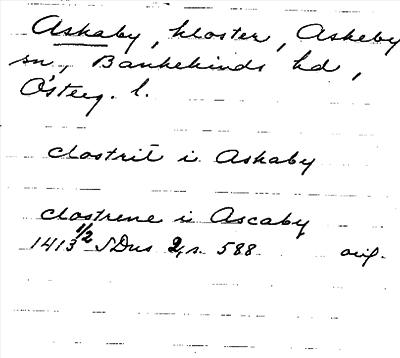 Askaby, kloster, Askeby
sn, Bankekinds hd,
Österg. l.
clostrit i Askaby
clostrene i Ascaby
1413 1/2 SDns 2, s. 588 orig.